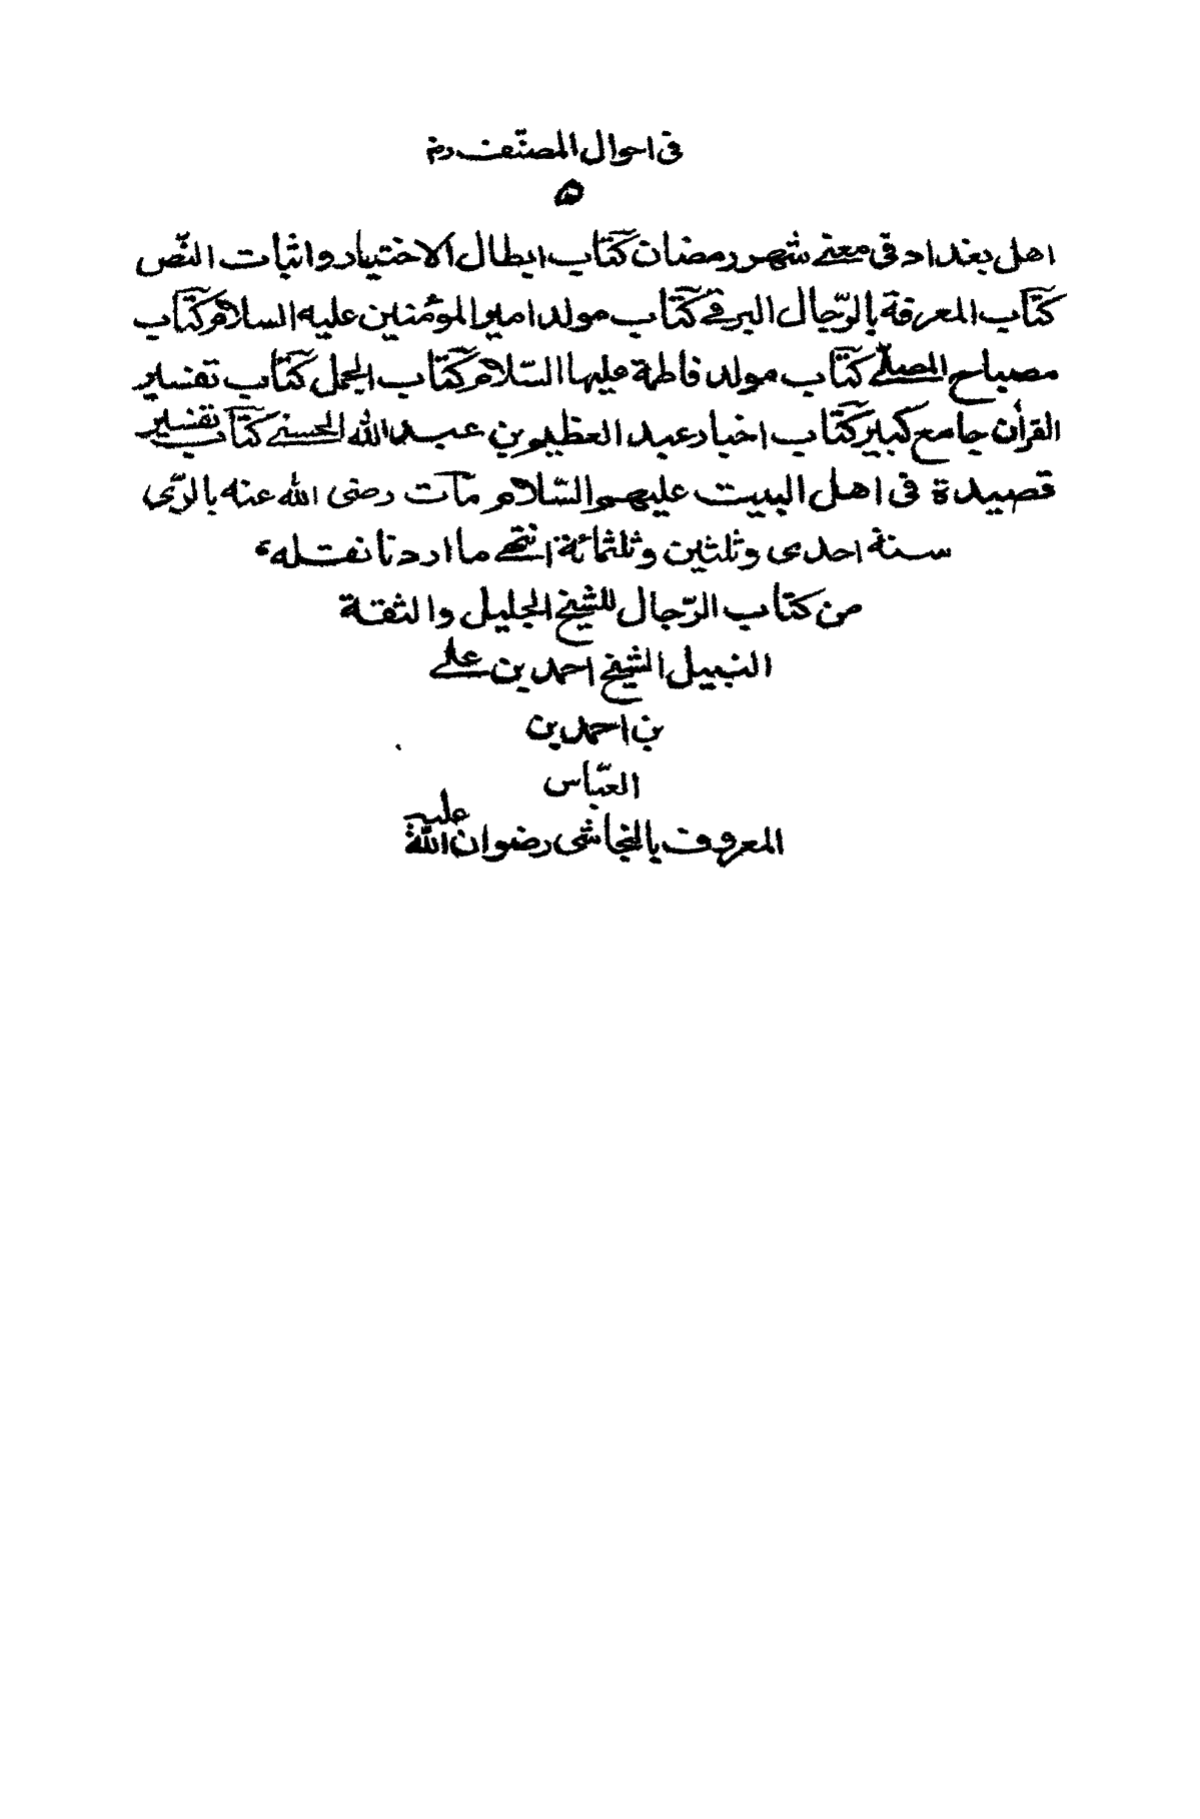 فى احوال المصنّف رض
۵
اهل بغداد فى معنى شهر رمضان كتاب ابطال الاختيار و اثبات النّص
كتاب المعرفة بالرّجال البرقى كتاب مولد امير المؤمنين عليه السلام كتاب
مصباح المصلّى كتاب مولد فاطمة عليها السّلام كتاب الجمل كتاب تفسير
القرأن جامع كبير كتاب اخبار عبد العظيم بن عبد الله الحسنى كتاب تفسير
قصيدة فى اهل البيت عليهم السّلام مات رضى الله عنه بالرّى
سنة احدى وثلثين وثلثمائة انتهى ما اردنا نقله
من كتاب الرّجال للشيخ الجليل والثقة
النبيل الشيخ احمد بن على
بن احمد بن
العبّاس
المعروف بالنجاشى رضوان الله عليه